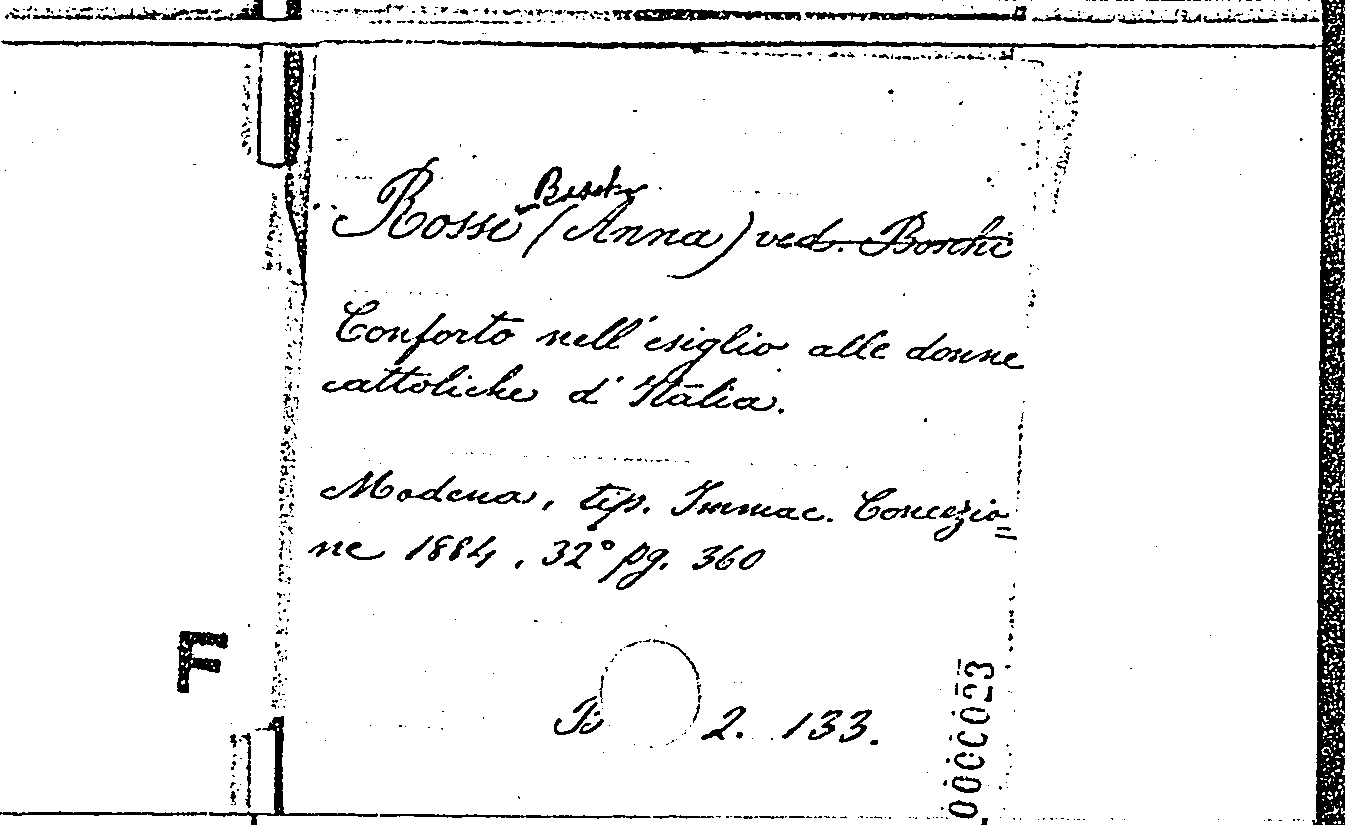 Rossi (Anna) ved. Boschi
Conforto nell'esiglio alle donne
cattoliche d'Italia.
Modena, tip. Immac. Concezio=
ne 1884, 32° pg. 360
2. 133.
F